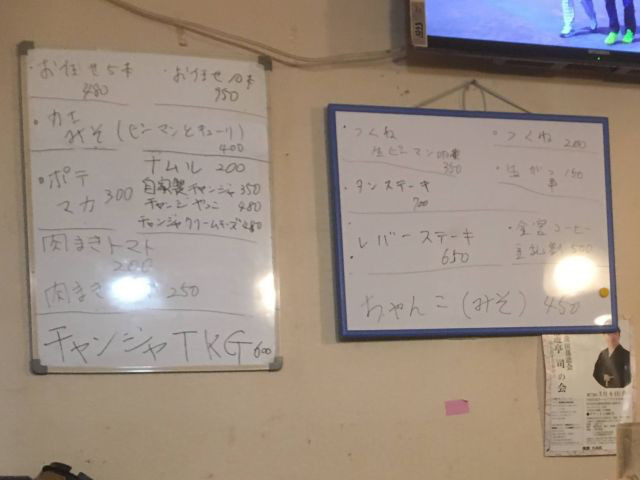 お任せ5本
480
お任せ10本
950
カニ
みそ(ピーマンとキューリ)
400
ポテ
マカ 300
ナムル 200
自家製チャンジャ 350
チャンジャやっこ 480
チャンジャクリームチーズ 480
肉まきトマト
200
肉まき 250
チャンジャTKG 600
つくね
生ピーマン
350
つくね 200
生がっ 150
タンステーキ
700
レバーステーキ
650
金宮コーヒー
豆乳割 500
ちゃんこ(みそ) 450
司の会